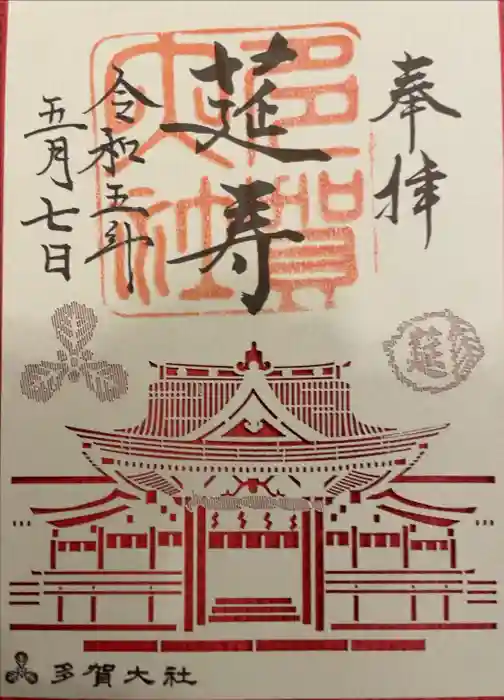 奉拝
莚寿
多賀大社
令和五年
五月七日
莚寿
多賀大社